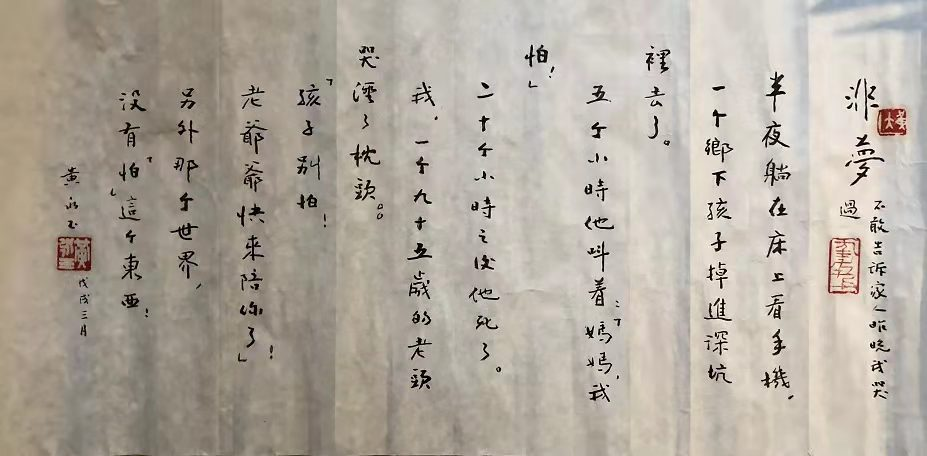 非夢
不敢告訴家人昨晚我哭
過
半夜躺在床上看手機，
一个鄉下孩子掉進深坑
裡去了。
五个小時他叫着：「媽媽，我
怕！」
二十个小時之後他死了。
我，一个九十五歲的老頭
哭溼了枕頭。
「孩子别怕！
老爺爺快來陪你了！」
另外那个世界，
没有「怕」這个東西！
黄永玉
戊戌三月